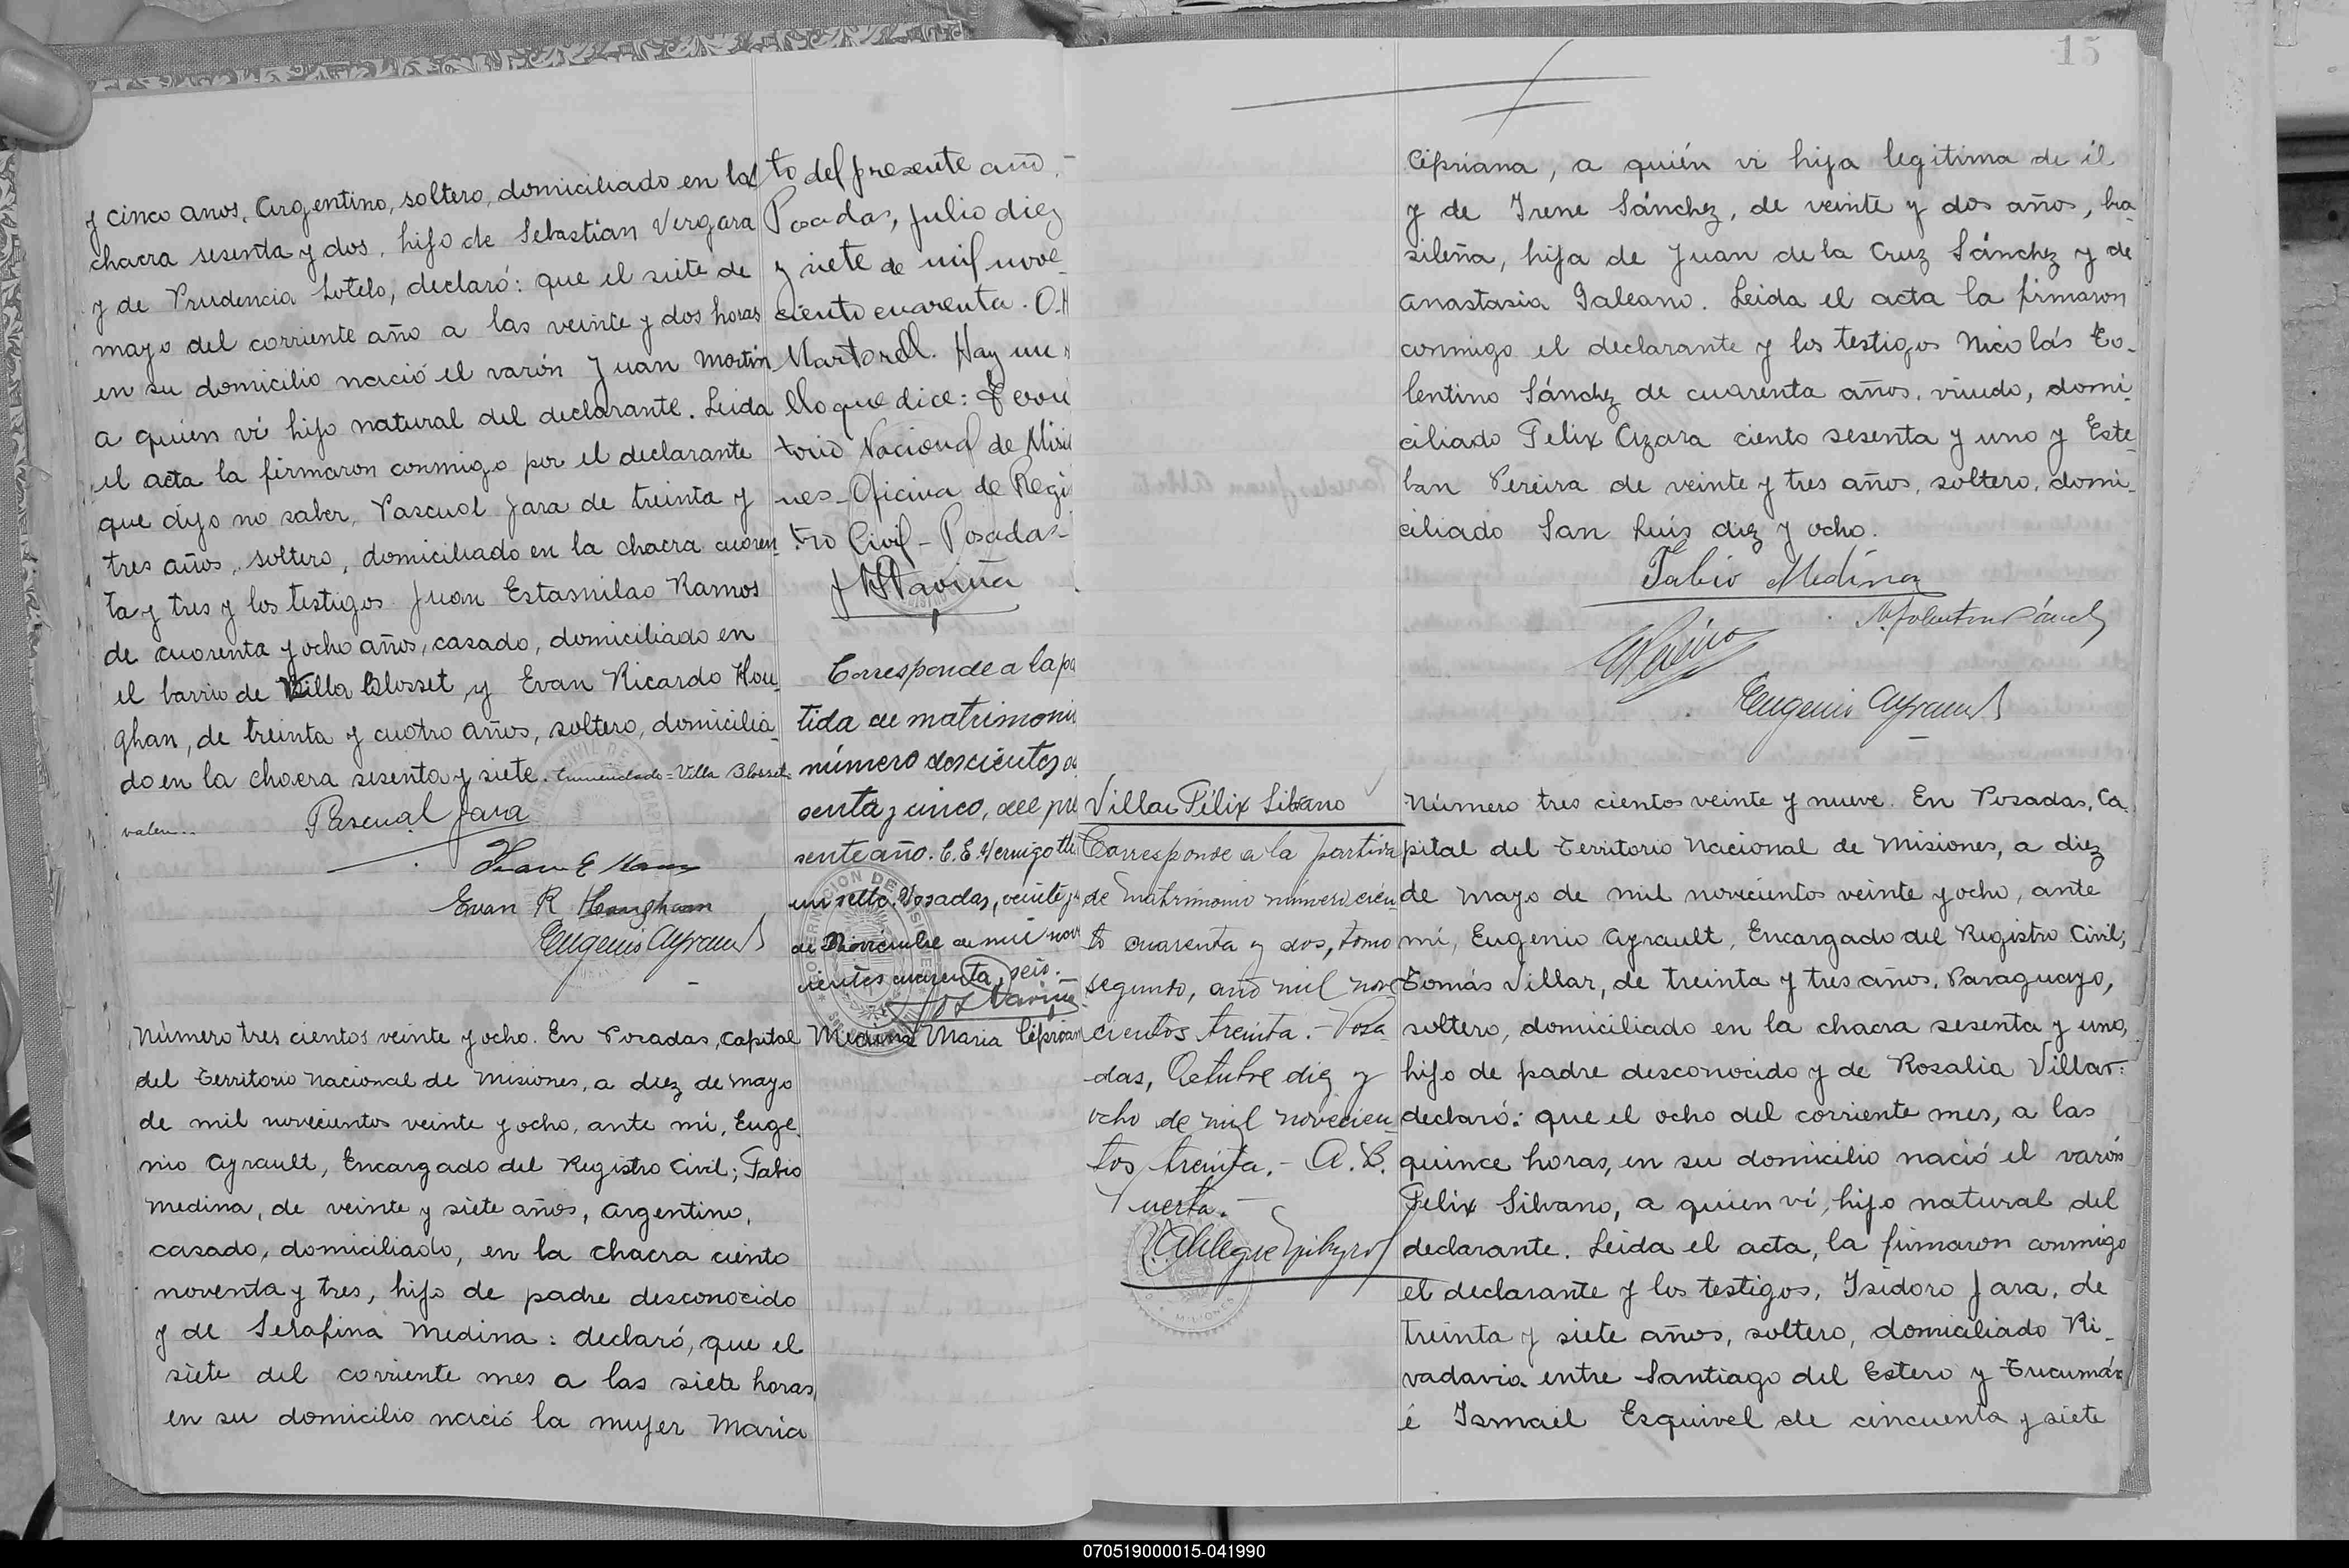 y cinco anos, Argentino, soltero, domiciliado en la
chacra sesenta y dos, hijo de Sebastian Vergara
y de Prudencia Sotelo, declaró: que el siete de
mayo del corriente año a las veinte y dos horas
en su domicilio nació el varón Juan Martin
a quien vi hijo natural del declarante. Leida
el acta la firmaron conmigo por el declarante
que dijo no saber, Pascual Jara de treinta y
tres años, soltero, domiciliado en la chacra cuaren-
ta y tres y los testigos Juan Estasnilao Ramos
de cuarenta y ocho años, casado, domiciliado en
el barrio de Villa Blosset y Evan Ricardo Hou-
ghan, de treinta y cuatro años, soltero, domicilia-
do en la chacra sesenta y siete. Enmendado=Villa Blosset=
valen...
Pascual Jara
Juan E Ramos
Evan R Houghan
Eugenio Ayrault
Número tres cientos veinte y ocho. En Posadas, Capital
del Territorio Nacional de Misiones, a diez de mayo
de mil novecientos veinte y ocho, ante mi, Euge-
nio Ayrault, Encargado del Registro Civil; Fabio
Medina, de veinte y siete años, Argentino,
casado, domiciliado, en la chacra ciento
noventa y tres, hijo de padre desconocido
y de Serafina Medina: declaró, que el
siete del corriente mes a las siete horas,
en su domicilio nació la mujer Maria
to del presente año.-
Posadas, Julio diez
y siete de mil nove-
ciento cuarenta. O.H
Martorell. Hay un s
llo que dice: Terri
torio Nacional de Misi
nes-Oficina de Regi
tro Civil-Posadas-
Corresponde a la pa
tida de matrimoni
número doscientos
senta y cinco, del pre
sente año.
un sello. Posadas, veinte y
de Noviembre de mil nove
cientos cuarenta y seis.
Medina Maria Ciprian
15
Villar Félix Silvano
Corresponde a la partida
de matrimonio número cien-
to cuarenta y dos, tomo
segundo, año mil nove
cientos treinta.-Posa
das, Octubre diez y
ocho de mil novecien-
tos treinta.- A.B.
Huerta.-
Cipriana, a quién vi hija legitima de él
y de Irene Sánchez, de veinte y dos años, bra-
sileña, hija de Juan de la Cruz Sánchez y de
Anastasia Galeano. Leida el acta la firmaron
conmigo el declarante y los testigos Nicolás To-
lentino Sánchez de cuarenta años, viudo, domi-
ciliado Felix Azara ciento sesenta y uno y Este-
ban Pereira de veinte y tres años, soltero, domi-
ciliado San Luis diez y ocho.
Fabio Medina
N. Tolentino Sánchez
EPereira
Eugenio Ayrault
Número tres cientos veinte y nueve. En Posadas, Ca-
pital del Territorio Nacional de Misiones, a diez
de Mayo de mil novecientos veinte y ocho, ante
mi, Eugenio Ayrault, Encargado del Registro Civil;
Tomás Villar, de treinta y tres años, Paraguayo,
soltero, domiciliado en la chacra sesenta y uno,
hijo de padre desconocido y de Rosalia Villar:
declaró: que el ocho del corriente mes, a las
quince horas, en su domicilio nació el varón
Felix Silvano, a quien vi, hijo natural del
declarante. Leida el acta, la firmaron conmigo
el declarante y los testigos, Isidoro Jara, de
treinta y siete años, soltero, domiciliado Ri-
vadavia entre Santiago del Estero y Tucumán
é Ismael Esquivel de cincuenta y siete
070519000015-041990